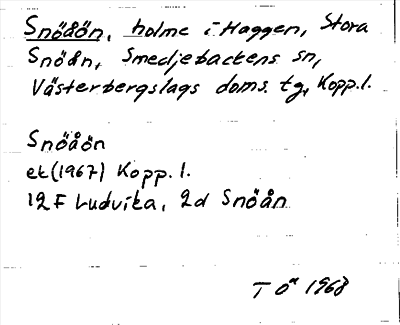 Snöåön, holme i Haggen, Stora
Snöån, Smedjebackens sn,
Västerbergslags doms. tg, Kopp.l.
Snöåön
ek(1967) Kopp. l.
12F Ludvika, 2d Snöån
T Ö 1968